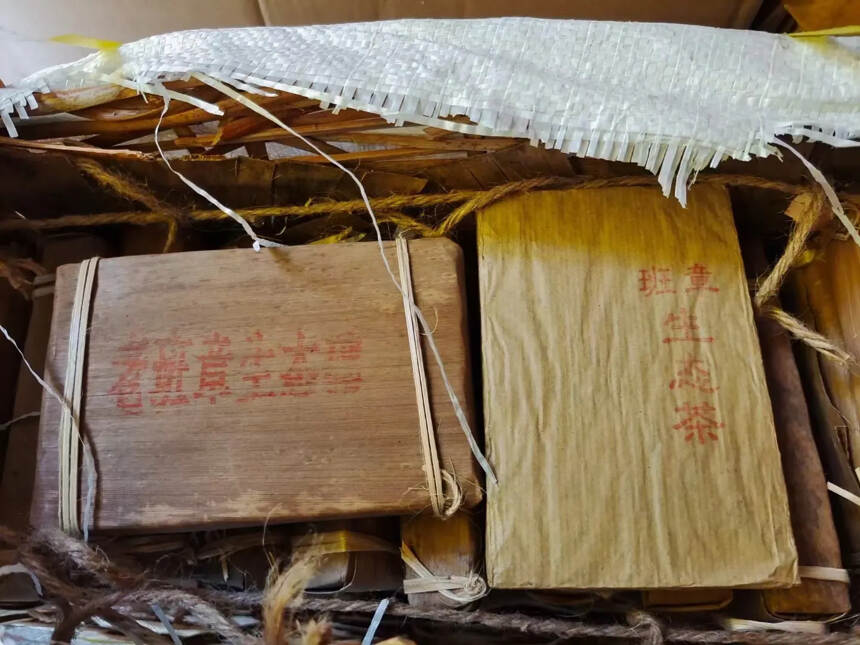 老班章生态
班章
生态茶